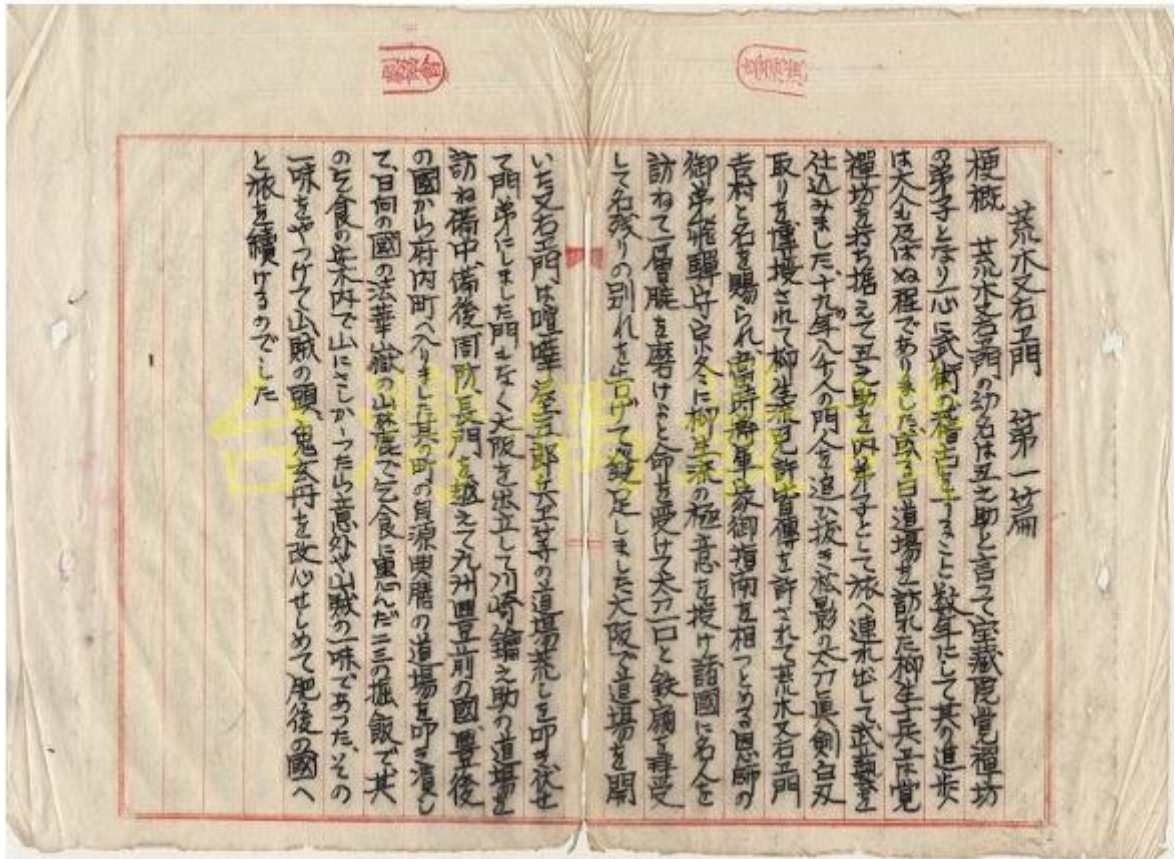 荒木又右ヱ門　第一篇
梗概　荒木又右ヱ門の幼名は丑之助と言って宝蔵院覚禪坊
の弟子となり一心に武術の稽古をすること数年にして其の進歩
は大人も及ばぬ程でありました或る日道場を訪れた柳生十兵ヱは覚
禪坊を持ち据えて丑之助を内弟子として旅へ連れ出して武藝を
仕込みました、十九年八千人の門人を追ひ抜き松影の太刀眞剣白刄
取りを傳授されて柳生流免許皆傳を許されて荒木又右ヱ門
吉村と名を賜られ当時将軍家御指南を相つとめる恩師の
御弟飛驒守宗冬に柳生流の極意を授け諸國に名人を
訪ねて一層腕を磨けよと命を受けて大刀一口と鉄扇を拝受
して名残りの別れを告げて出足しました大阪で道場を開
いた又右ヱ門は喧嘩屋五郎兵ヱ等の道場荒しを叩き伏せ
て門弟にしました間もなく大阪を出立して川崎鑰之助の道場を
訪ね備中、備後周防、長門を越えて九州豊前の國、豊後
の國から府内町へ入りました其の町の貞源典膳の道場を叩き潰し
て、日向の國の法華嶽の山麓で乞食に恵んだ二三の握飯で、其
の乞食の案内で山にさしかかった山意外や山賊の一味であつた、その
一味をやつけて山賊の頭、鬼玄丹を改心せしめて肥後の國へ
と旅を續けるのでした